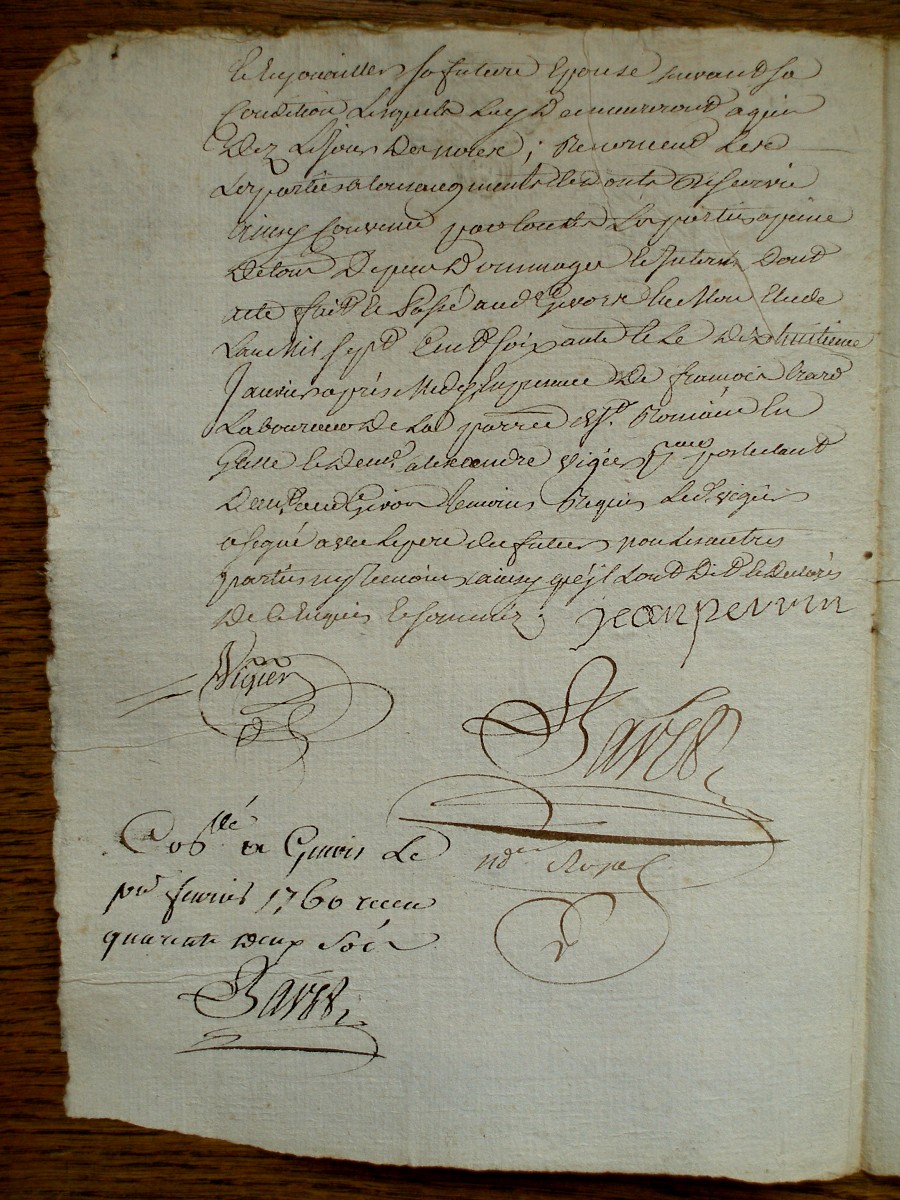 et enjouailler sa future epouse suivant sa
Condition lesquels luy demeureront aquis
Dez le jour des noces ;
Les parties
ainsy Convenu par toutes les parties a peine
De tous Depens Dommages et Interets Dont
acte fait et Passé aud Givors en Mon Etude
Lan Mil sept Cent soixante et le Dezhuitieme
Janvier après Midy En presence De francois
Laboureur De La parroisse de St. Romain en
Giste et De sr. alexandre vigier postulant
Dem.t aud Givors Temoins Requis Led. vigier
a signé avec le pere du futur non les autres
parties ny Temoins ainsy qu'jl sont Dit et Declaré
De ce Enquis et sommés. jean perrin
Vigier
Bares
n.re Royal
Con.llé a Givors Le
pr. fevrier 1760 receu
quarente deux sols
Bares